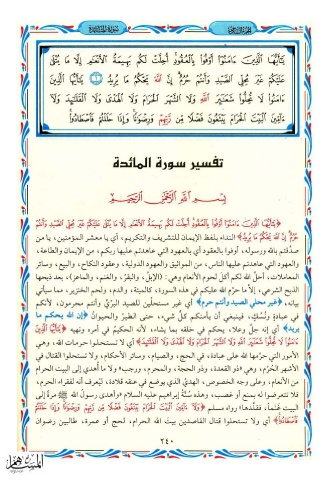 يَٰٓأَيُّهَا ٱلَّذِينَ ءَامَنُوٓا۟ أَوْفُوا۟ بِٱلْعُقُودِ أُحِلَّتْ لَكُم بَهِيمَةُ ٱلْأَنْعَٰمِ إِلَّا مَا يُتْلَىٰ
عَلَيْكُمْ غَيْرَ مُحِلِّى ٱلصَّيْدِ وَأَنتُمْ حُرُمٌ إِنَّ ٱللَّهَ يَحْكُمُ مَا يُرِيدُ ١ يَٰٓأَيُّهَا ٱلَّذِينَ
ءَامَنُوا۟ لَا تُحِلُّوا۟ شَعَٰٓئِرَ ٱللَّهِ وَلَا ٱلشَّهْرَ ٱلْحَرَامَ وَلَا ٱلْهَدْىَ وَلَا ٱلْقَلَٰٓئِدَ وَلَآ
ءَآمِّينَ ٱلْبَيْتَ ٱلْحَرَامَ يَبْتَغُونَ فَضْلًا مِّن رَّبِّهِمْ وَرِضْوَٰنًا وَإِذَا حَلَلْتُمْ فَٱصْطَادُوا۟
تفسير سورة المائدة
بسم الله الرحمن الرحيم
﴿يَٰٓأَيُّهَا ٱلَّذِينَ ءَامَنُوٓا۟ أَوْفُوا۟ بِٱلْعُقُودِ أُحِلَّتْ لَكُم بَهِيمَةُ ٱلْأَنْعَٰمِ إِلَّا مَا يُتْلَىٰ عَلَيْكُمْ غَيْرَ مُحِلِّى ٱلصَّيْدِ وَأَنتُمْ
حُرُمٌ إِنَّ ٱللَّهَ يَحْكُمُ مَا يُرِيدُ﴾ النداء بلفظ الإيمان للتشريف والتكريم، أي يا معشر المؤمنين، يا من
صدقتم بالله ورسوله، أوفوا بالعقود أي بالعهود التي عاهدتم عليها ربكم، من الإيمان والطاعة،
والعهود التي عاهدتم عليها الناس، من المواثيق والعهود الدولية، وعقود النكاح، والبيع، وسائر
المعاملات، أحل الله لكم أكل لحوم الأنعام وهي: (الإبل، والبقر، والغنم، والماعز)، بعد ذبحها
الذبح الشرعي، إلا ما حرم الله عليكم في هذه السورة، كالميتة، والدم، ولحم الخنزير، مما سيأتي
بيانه، ﴿غير محلي الصيد وأنتم حرم﴾ أي غير مستحلين للصيد البري وأنتم محرمون، لأنكم
في عبادة ونسك، فينبغي أن يأمنكم كل شيء، حتى الطير والحيوان ﴿إن الله يحكم ما
يريد﴾ أي إنه جل وعلا، يحكم في خلقه بما يشاء، لأنه الحكيم في أمره ونهيه ﴿يَٰٓأَيُّهَا ٱلَّذِينَ
ءَامَنُوا۟ لَا تُحِلُّوا۟ شَعَٰٓئِرَ ٱللَّهِ وَلَا ٱلشَّهْرَ ٱلْحَرَامَ وَلَا ٱلْهَدْىَ وَلَا ٱلْقَلَٰٓئِدَ﴾ أي لا تستحلوا حرمات الله، وهي
الأمور التي حرمها الله على عباده، في الحج، والصيام، وسائر الأحكام، ولا تستحلوا القتال في
الأشهر الحرم، وهي (ذو القعدة، وذو الحجة، والمحرم، ورجب) ولا ما أهدي إلى البيت الحرام
من الأنعام، وعلى وجه الخصوص، الهدي الذي يوضع في عنقه قلادة، ليعرف أنه لفقراء الحرم،
فلا تتعرضوا له بمنع أو غصب، وهذه سنة إبراهيم عليه السلام «وأهدى رسول الله ﷺ مرة إلى
البيت غنما، فقلدها» رواه مسلم ﴿وَلَآ ءَآمِّينَ ٱلْبَيْتَ ٱلْحَرَامَ يَبْتَغُونَ فَضْلًا مِّن رَّبِّهِمْ وَرِضْوَٰنًا وَإِذَا حَلَلْتُمْ
فَٱصْطَادُوا۟﴾ أي ولا تستحلوا قتال القاصدين بيت الله الحرام، لحج أو عمرة، طالبين رضوان
٢٤٠